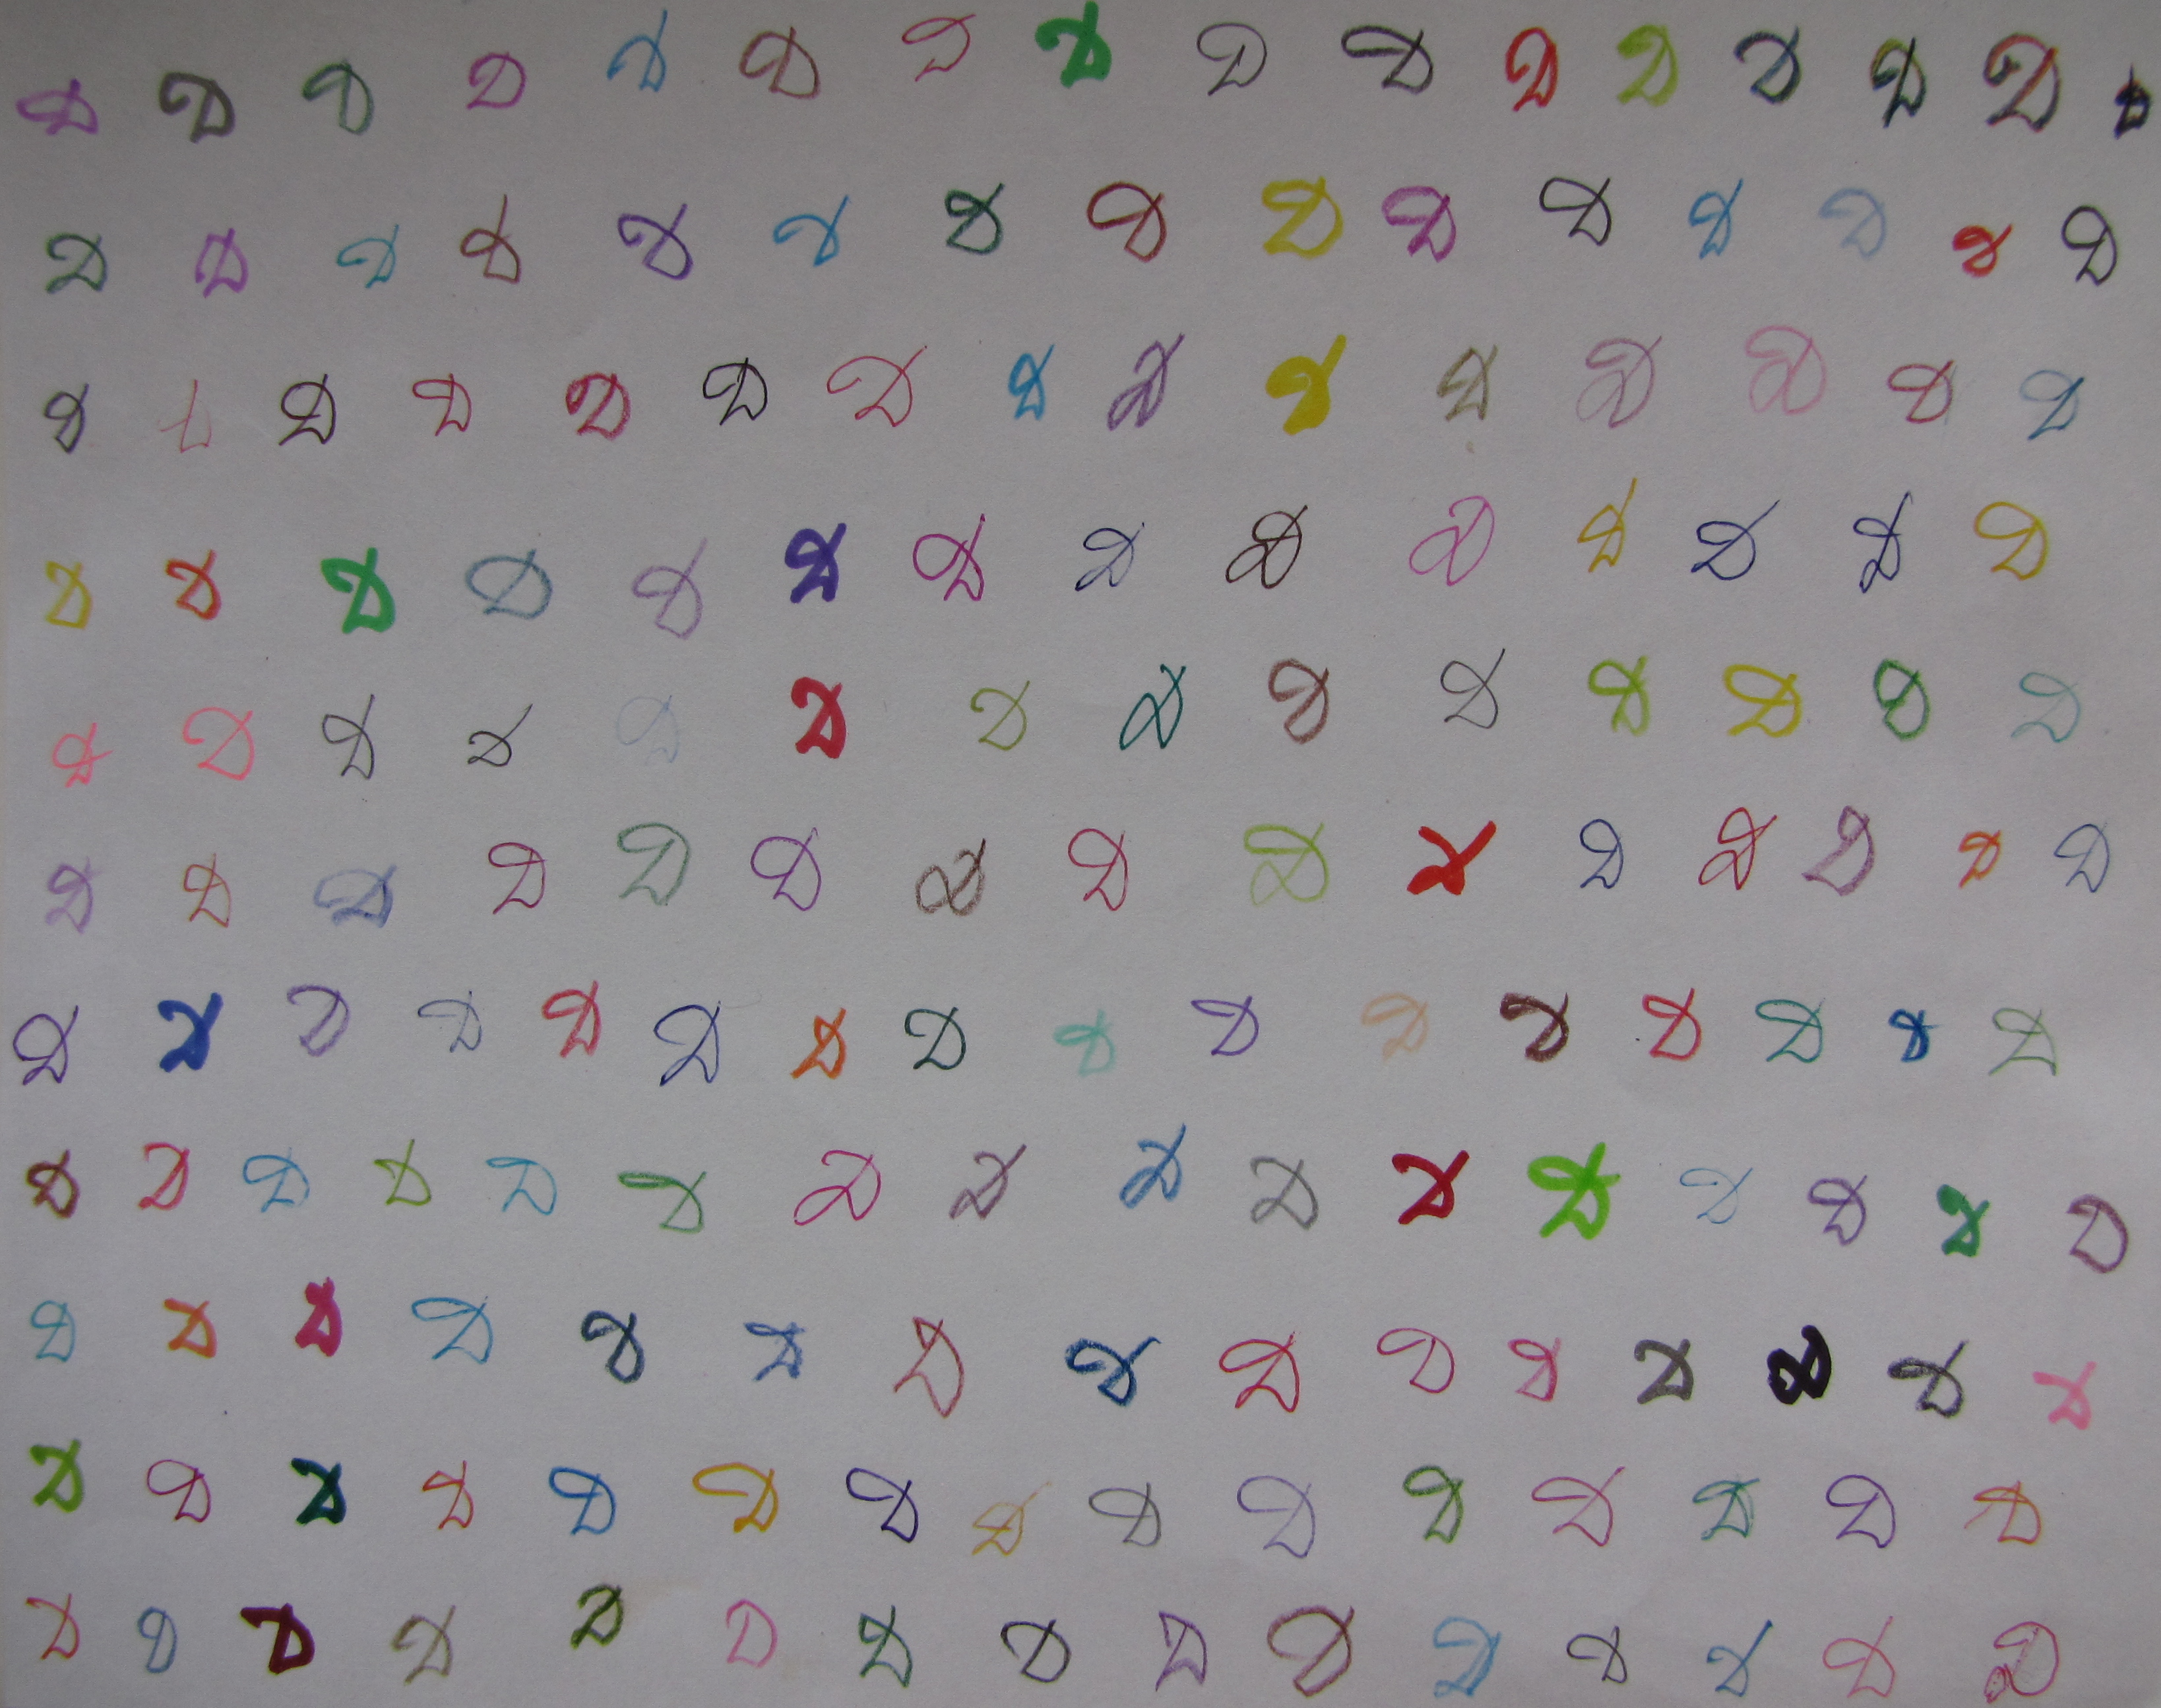 D D D D D D D D D D D D D D D D
D D D D D D D D D D D D D D D
D D D D D D D D D D D D D D
D D D D D D D D D D D D D D
D D D D D D D D D D D D D D
D D D D D D D D D D D D D D D
D D D D D D D D D D D D D D D D
D D D D D D D D D D D D D D D D
D D D D D D D D D D D D D D D
D D D D D D D D D D D D D D D
D D D D D D D D D D D D D D D